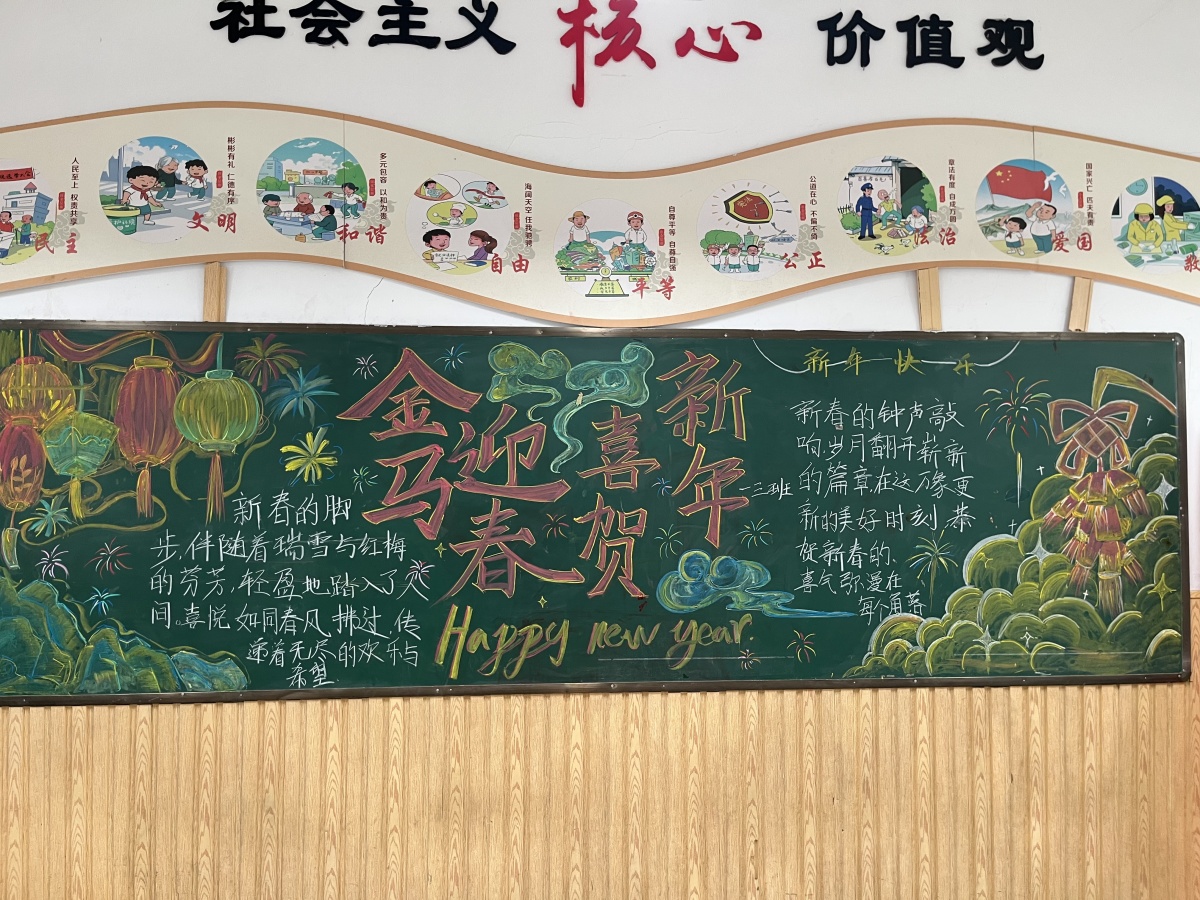 社会主义 核心 价值观
人民至上 权责共享
民主
彬彬有礼 仁德有序
文明
多元包容 以和为贵
和谐
海阔天空 任我驰骋
自由
自尊平等 自尊自强
平等
公道在心 不偏不倚
公正
章法有度 自成方圆
法治
国家兴亡 匹夫有责
爱国
敬
金马迎春
喜贺新年
一三班
Happy new year.
新春的脚
步,伴随着瑞雪与红梅
的芬芳,轻盈地踏入了人
间。喜悦如同春风拂过,传
递着无尽的欢乐与
希望.
新年快乐
新春的钟声敲
响,岁月翻开崭新
的篇章在这万象更
新的美好时刻,恭
贺新春的,
喜气弥漫在
每个角落